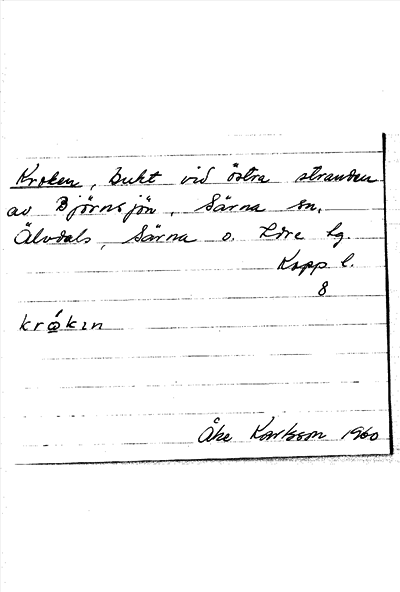 Kroken, bukt vid östra stranden
av Björnsjön, Särna sn.
Älvdals, Särna o. Idre lg.
Kopp. l.
8
krωkın
Åke Karlsson 1960